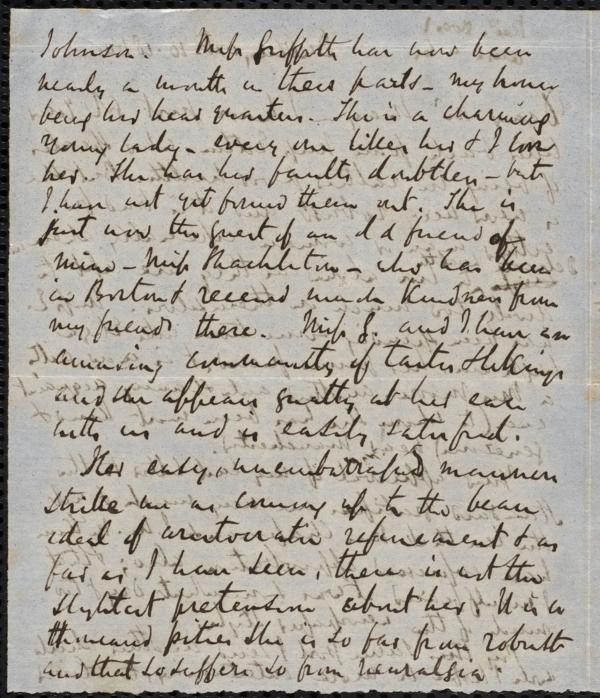 Johnson. Miss Griffith has now been
nearly a month in these parts - my house
being her head quarters. She is a charming
young lady - every one likes her & I love
her. She has her faults doubtless - but
I have not yet found them out. She is
just now the guest of an old friend of
mine - Miss Shackleton - who has been
in Boston & received much kindness from
my friends there. Miss G. and I have an
amazing community of tastes & likings
and she appears greatly at her ease
with us and is easily satisfied.
Her easy, unembarrassed manners
strike me as coming up to the beau
ideal of aristocratic refinement & as
far as I have seen, there is not the
slightest pretension about her. It is a
thousand pities she is so far from robust
and that so suffers so from neuralgia.